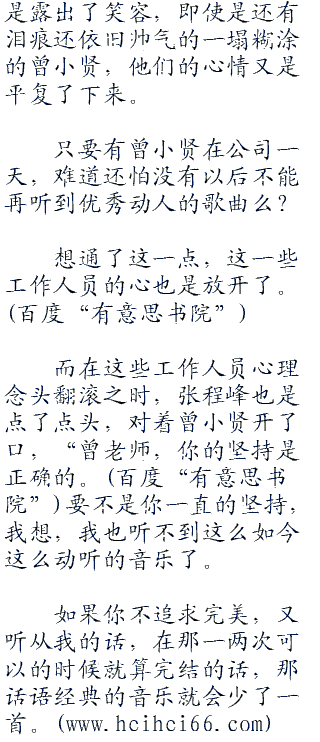 是露出了笑容，即使是还有
泪痕还依旧帅气的一塌糊涂
的曾小贤，他们的心情又是
平复了下来。
只要有曾小贤在公司一
天，难道还怕没有以后不能
再听到优秀动人的歌曲么？
想通了这一点，这一些
工作人员的心也是放开了。
(百度“有意思书院”)
而在这些工作人员心理
念头翻滚之时，张程峰也是
点了点头，对着曾小贤开了
口，“曾老师，你的坚持是
正确的。(百度“有意思书
院”)要不是你一直的坚持，
我想，我也听不到这么如今
这么动听的音乐了。
如果你不追求完美，又
听从我的话，在那一两次可
以的时候就算完结的话，那
话语经典的音乐就会少了一
首。(www.hcihci66.com)